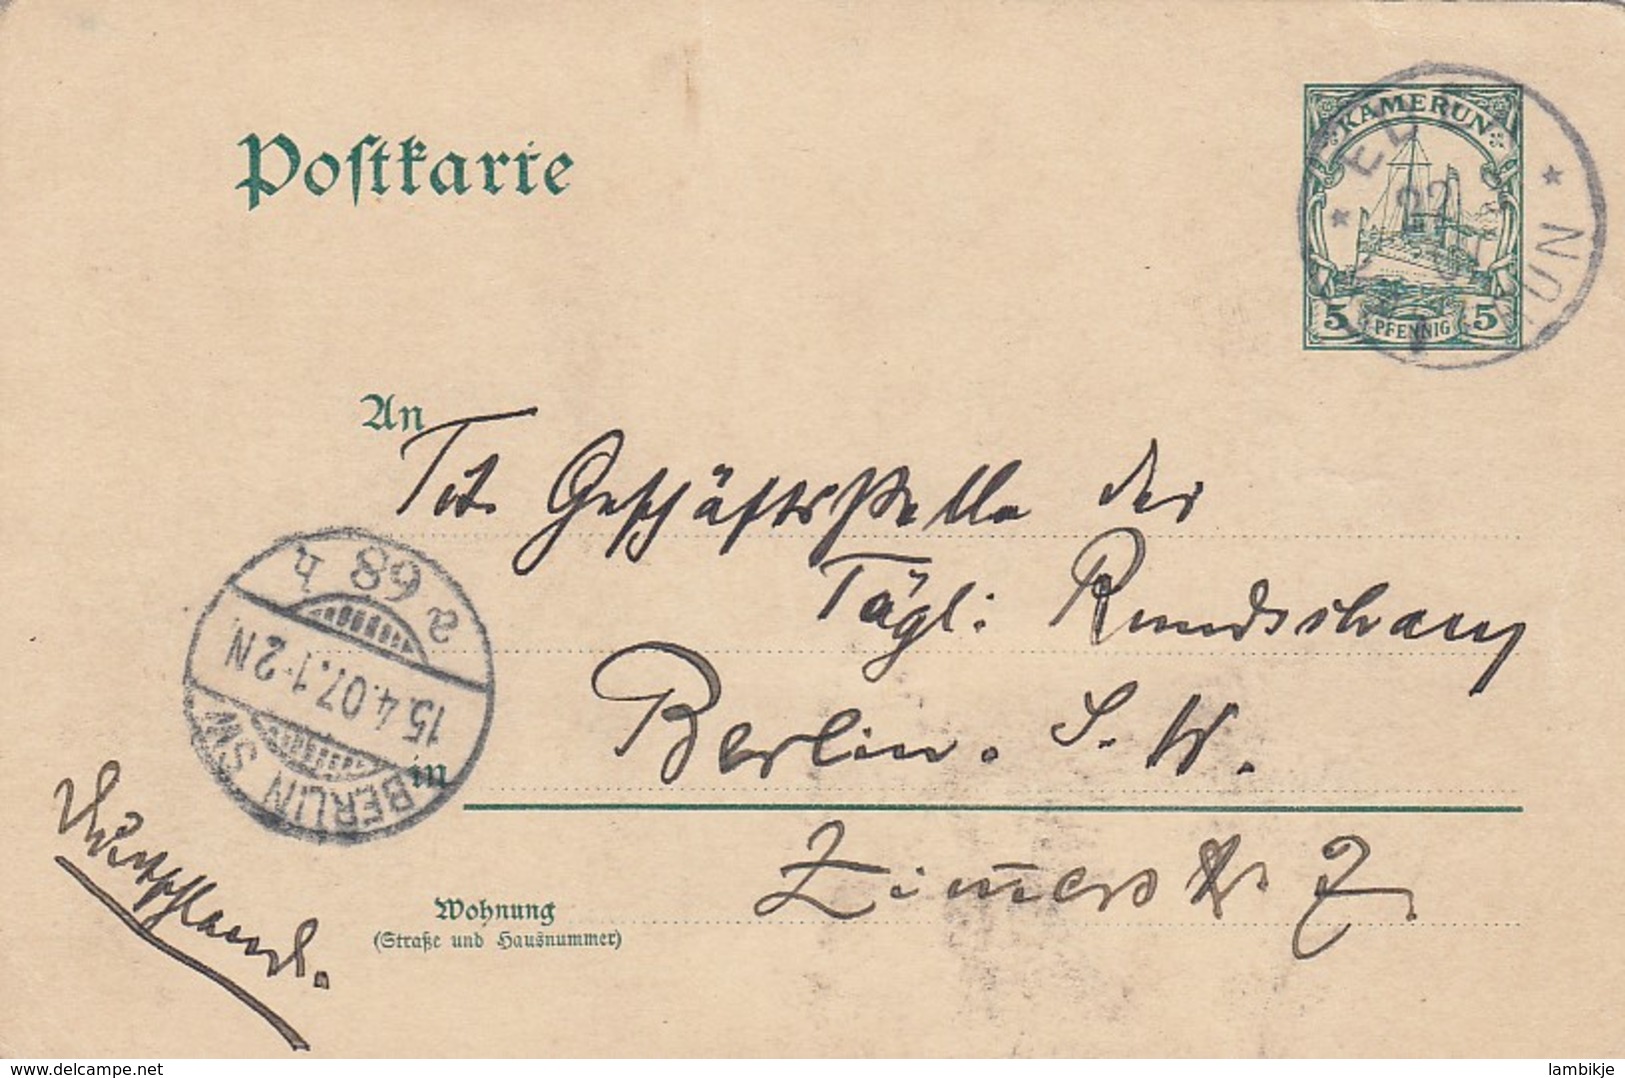 Postkarte
KAMERUN
5 PFENNIG 5
22
An
Tit. Geschäftsstelle der
Tägl. Rundschau
in Berlin. S. W.
Zimmerstr. 7.
Wohnung
(Straße und Hausnummer)
BERLIN SW
15.4.07.1-2N
68
Deutschland.
delcampe.net
lambikje